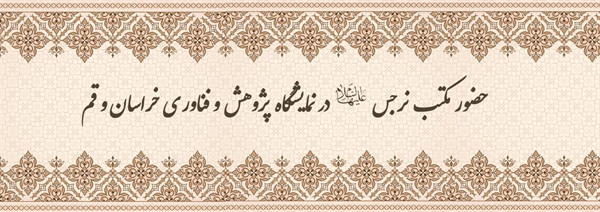 حضور مکتب نرجس علیهاالسلام در نمایشگاه پژوهش و فناوری خراسان و قم